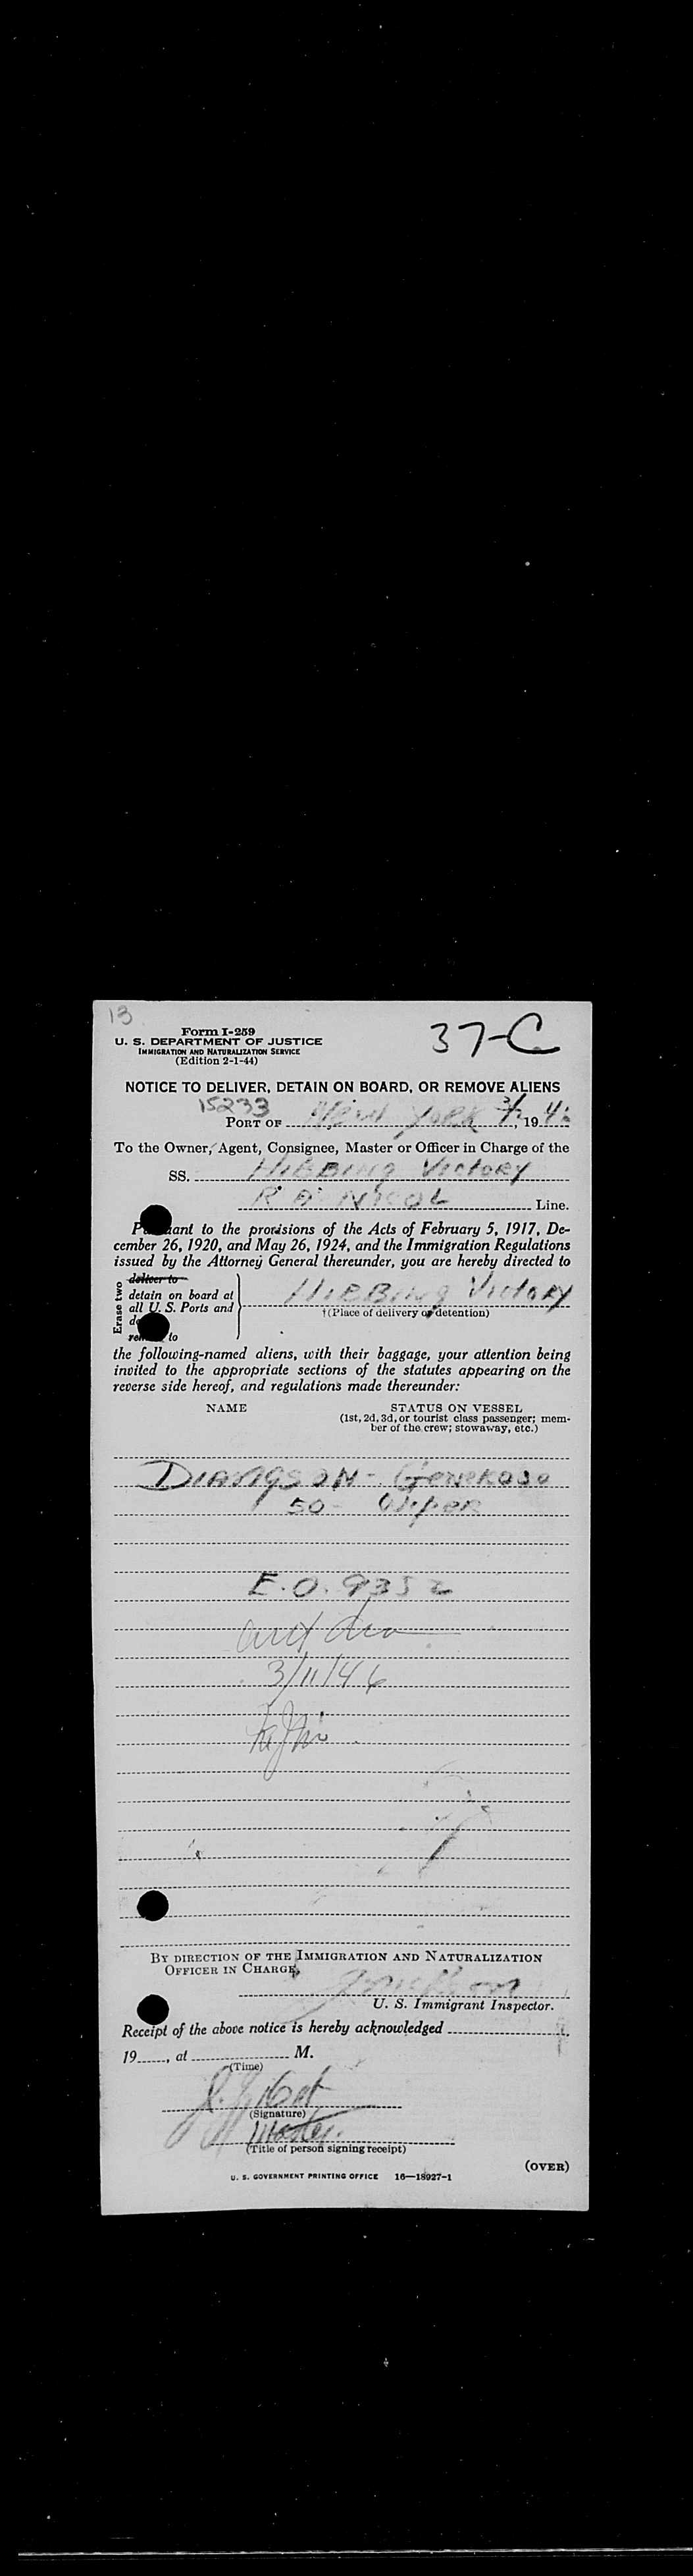 13
37-C
Form I-259
U. S. DEPARTMENT OF JUSTICE
IMMIGRATION AND NATURALIZATION SERVICE
(Edition 2-1-44)
NOTICE TO DELIVER, DETAIN ON BOARD, OR REMOVE ALIENS
15233
PORT OF New York 19 46
To the Owner, Agent, Consignee, Master or Officer in Charge of the
SS. Hibbing Victory
R A Nicol Line.
Pursuant to the provisions of the Acts of February 5, 1917, De-
cember 26, 1920, and May 26, 1924, and the Immigration Regulations
issued by the Attorney General thereunder, you are hereby directed to
Erase two
deliver to
detain on board at
all U. S. Ports and
to
Hibbing Victory
†(Place of delivery or detention)
the following-named aliens, with their baggage, your attention being
invited to the appropriate sections of the statutes appearing on the
reverse side hereof, and regulations made thereunder:
NAME
STATUS ON VESSEL
(1st, 2d, 3d, or tourist class passenger; mem-
ber of the crew; stowaway, etc.)
Diangson - Generoso
50 - Wiper
E.O. 9352
3/11/46
BY DIRECTION OF THE IMMIGRATION AND NATURALIZATION
OFFICER IN CHARGE,
U. S. Immigrant Inspector.
Receipt of the above notice is hereby acknowledged
19, at M.
(Time)
(Signature)
Master
(Title of person signing receipt)
(OVER)
U. S. GOVERNMENT PRINTING OFFICE 16—18927-1